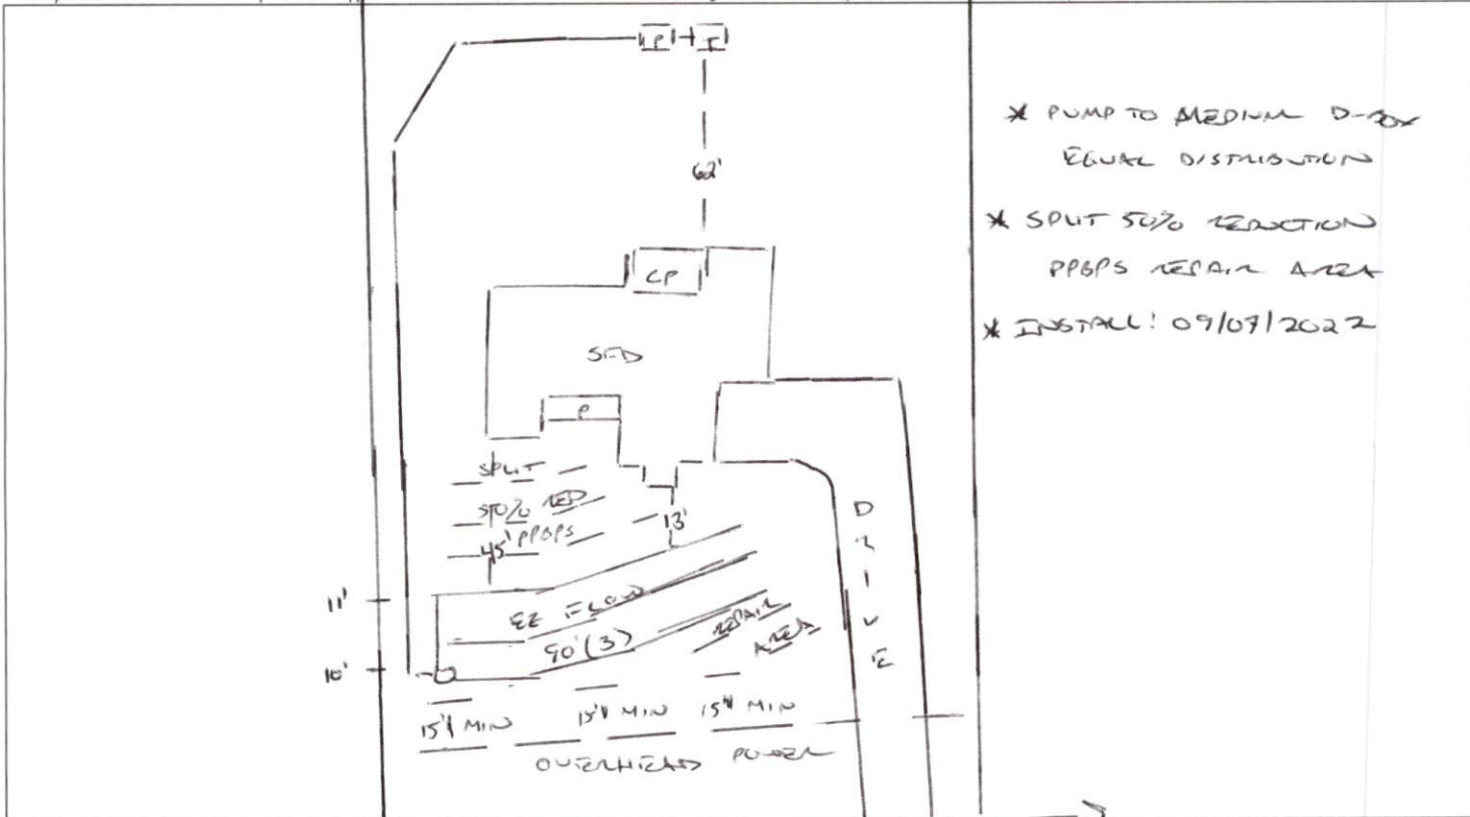 P T
62'
CP
SFD
P
SPLIT
50% RED
PPBPS
45'
13'
EZ FLOW
90' (3)
REPAIR
AREA
DRIVE
11'
10'
15' MIN 15' MIN 15' MIN
OVERHEAD POWER
* PUMP TO MEDIUM D-BOX
EQUAL DISTRIBUTION
* SPLIT 50% REDUCTION
PPBPS REPAIR AREA
* INSTALL: 09/07/2022